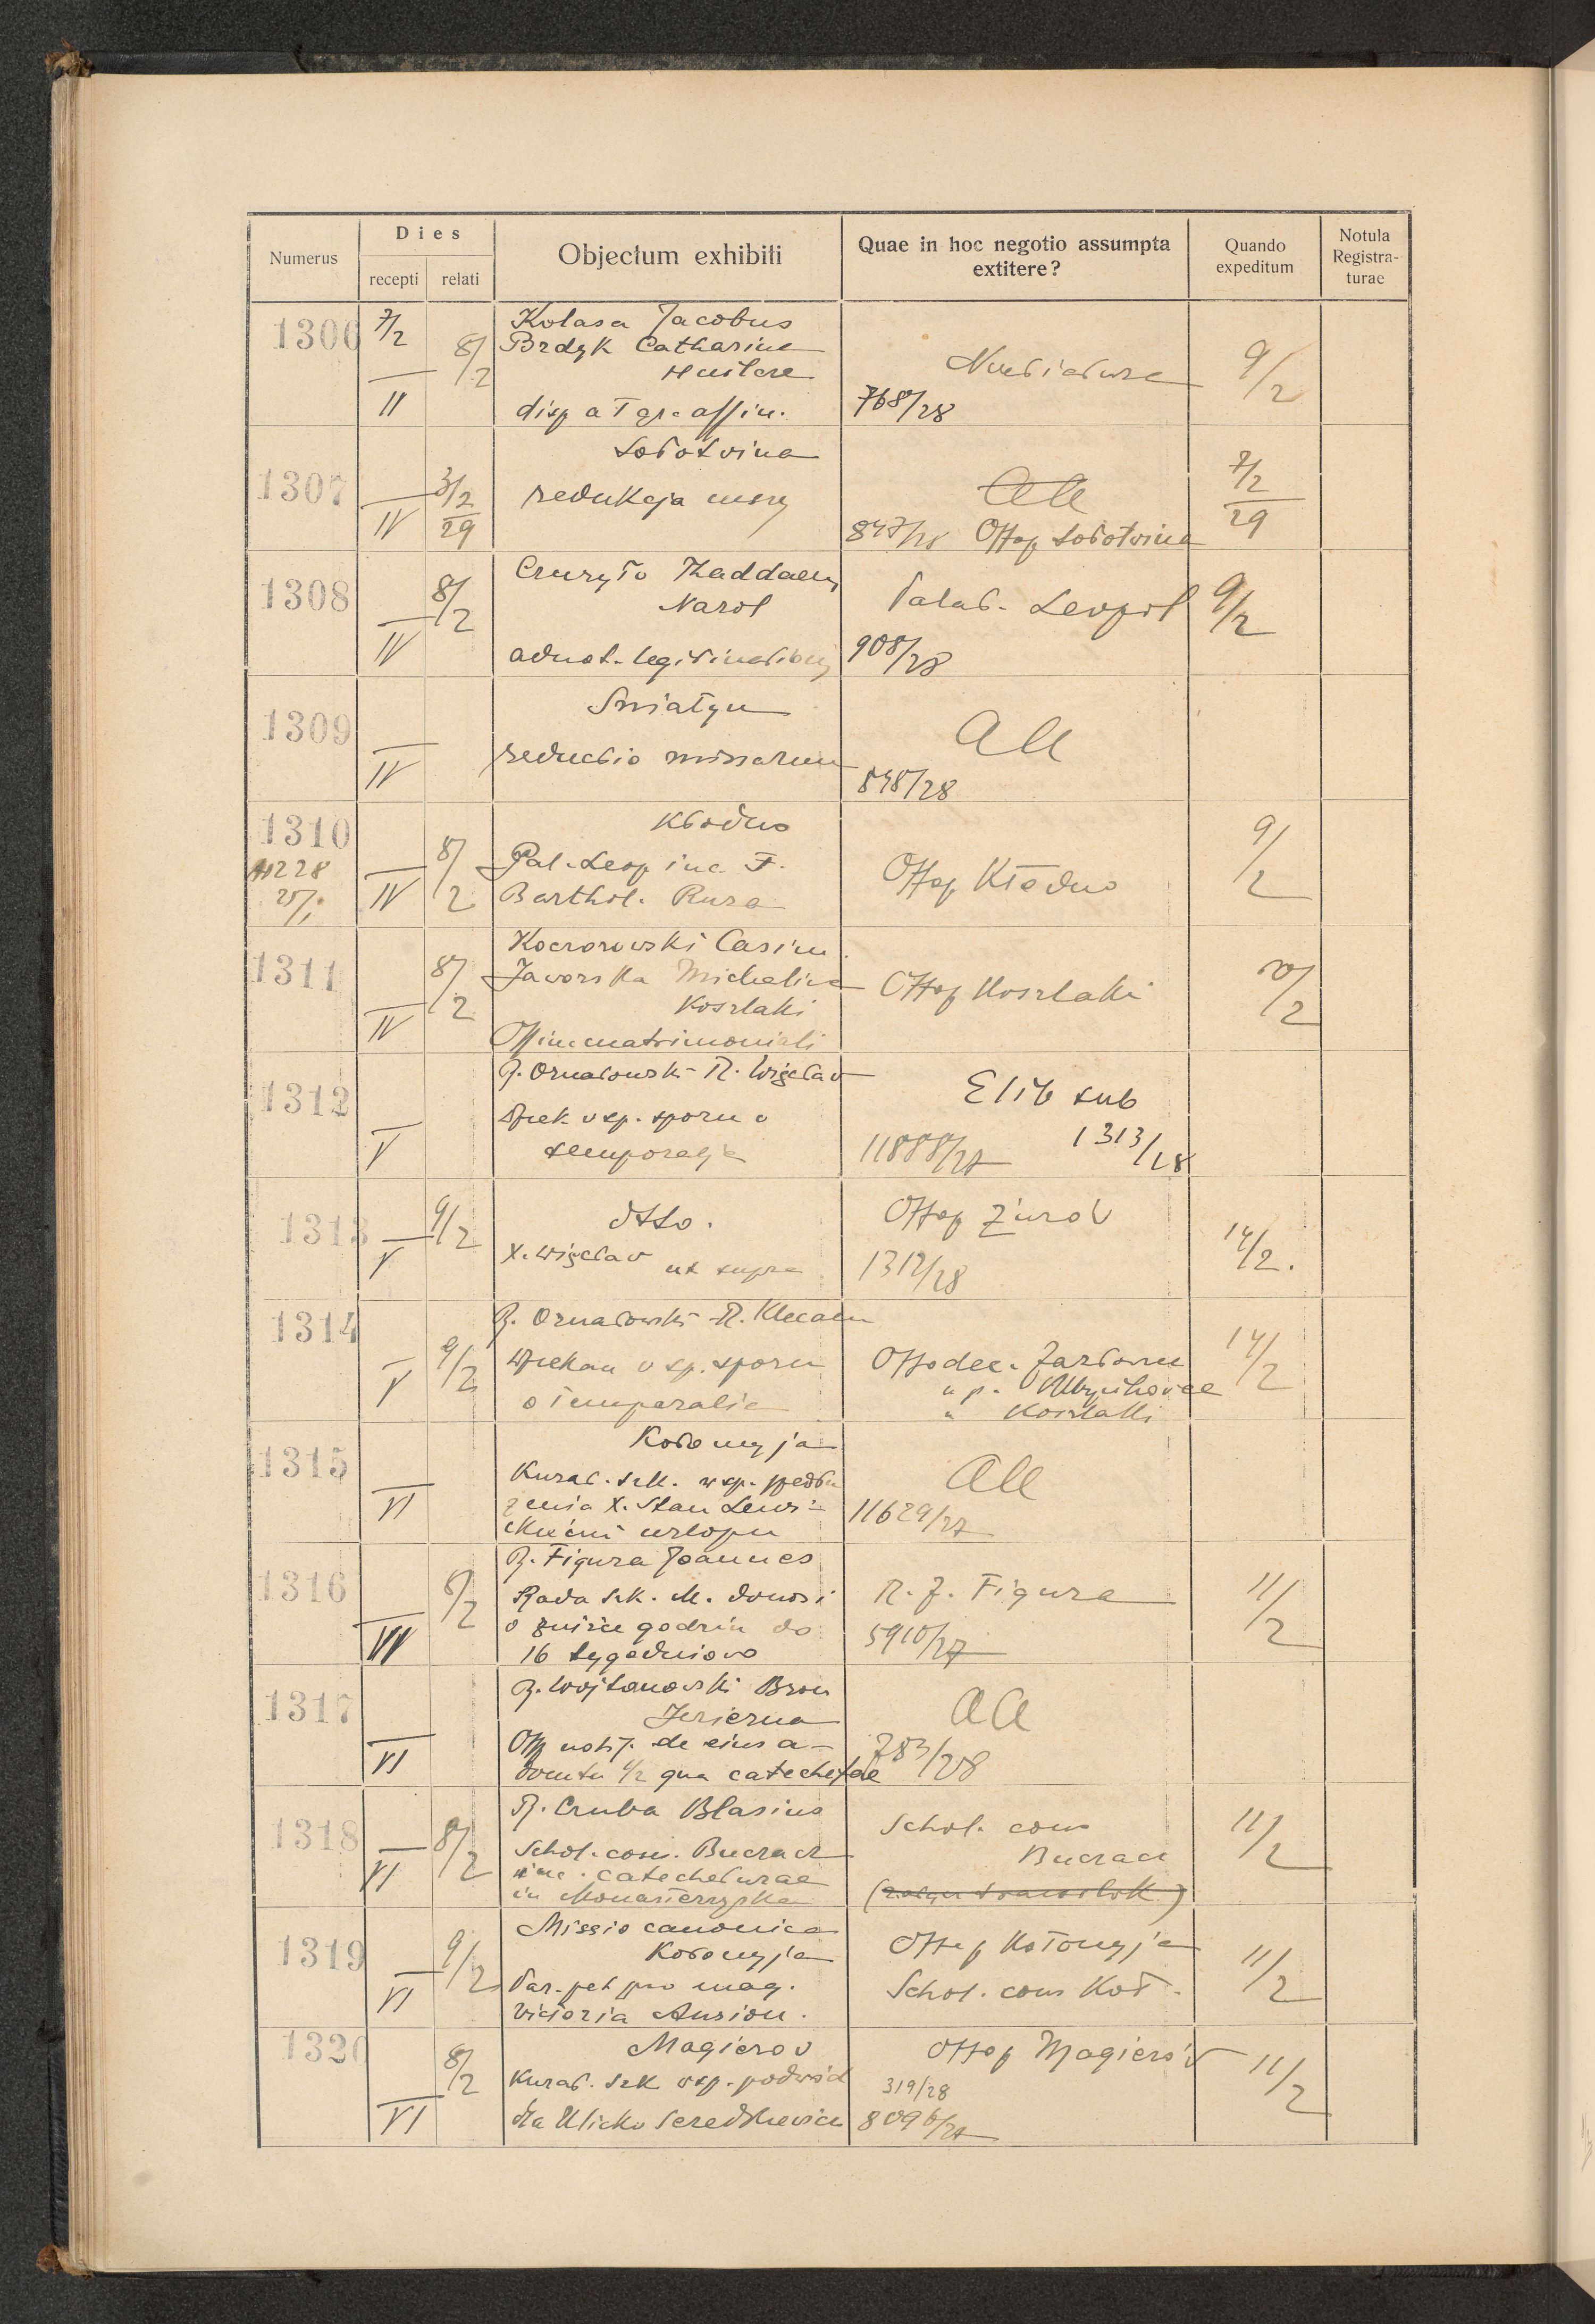 Numerus
Dies
recepti relati
Objectum exhibiti
Quae in hoc negotio assumpta extitere?
Quando expeditum
Notula Registra-turae
1306 7/2 8/2 Kolasa Jacobus
Brdyk Catharina
II disp a I gr. affin. 768/28 9/2
1307 IV 3/2 29 Sołotwina
redukcja mszy
847/28 Offop Sołotwina 7/2 29
1308 IV 8/2 Thaddaeus
Narol
adnot. legitimationis
Palat. Leopol 9/2
908/28
1309 IV Śniatyn
reductio missarum
aa
848/28
1310 IV 8/2 Kłodno
Pal. Leop inc. F.
Barthol.
Offop Kłodno 9/2
1311 IV 8/2 Casim.
Jaworska Michelina
Koszlaki
Off in c matrimoniali
Offop Koszlaki
1312 V R. Ornatowski - R. Więcław
wsp. sporu o
temporalja
Elib sub
1313/28
11888/27
1313 V 9/2 dtto.
X. Więcław ut supra
Offop Żurów 14/2.
1312/28
1314 V 9/2 R. Ornatowski - R.
w sp. sporu
o temporalia
Offodec. 14/2
" p.
" Koszlaki
1315 VI Kołomyja
Kurat. szk. w sp.
żenia X. Stan
urlopu
aa
11629/27
1316 VII 8/2 R. Figura Joannes
Rada szk. M. donosi
o zniżce godzin do
16 tygodniowo
R. J. Figura 11/2
5910/27
1317 VI R. Wojtanowski Bron
Jezierna
Offop notif. de eius a-
dventu 1/2 qua catechetae
aa
783/28
1318 VI 8/2 R. Czuba Blasius
Schol. com. Buczacz
in c. catecheturae
in Monasterzyska
Schol. com
Buczacz 11/2
1319 VI 9/2 Missio canonica
Kołomyja
Par. pet pro mag.
Victoria
Offop Kołomyja
Schol. com Koł. 11/2
1320 VI 8/2 Magierów
Kurat. szk wsp. podwód
dla Ulicko Seredkiewicz
Offop Magierów 11/2
319/28
8096/27